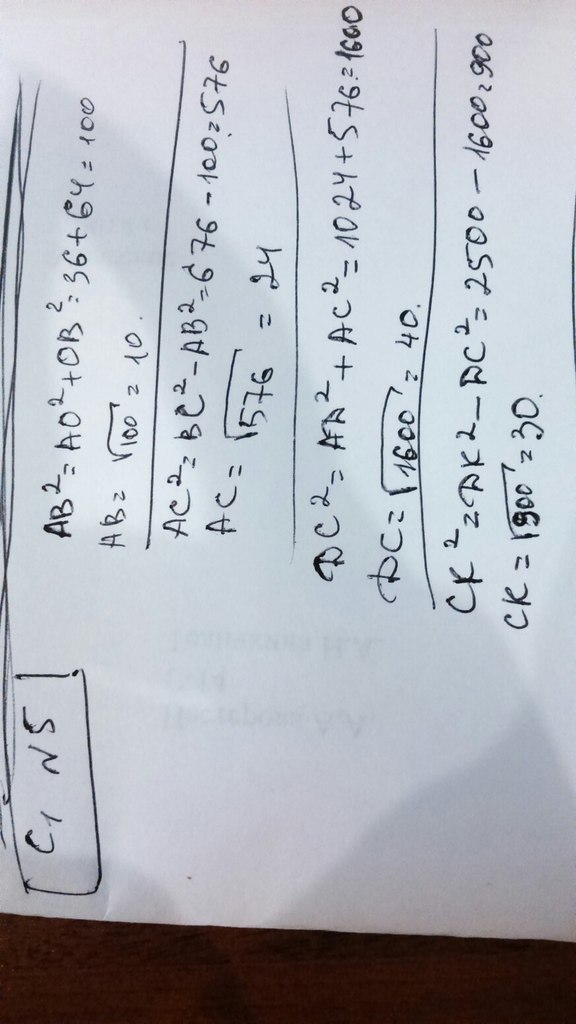 C1 N5
AB² = AO² + OB² = 36 + 64 = 100
AB = √100 = 10.
AC² = BC² - AB² = 676 - 100 = 576
AC = √576 = 24
DC² = AD² + AC² = 1024 + 576 = 1600
DC = √1600 = 40.
CK² = DK² - DC² = 2500 - 1600 = 900
CK = √900 = 30.